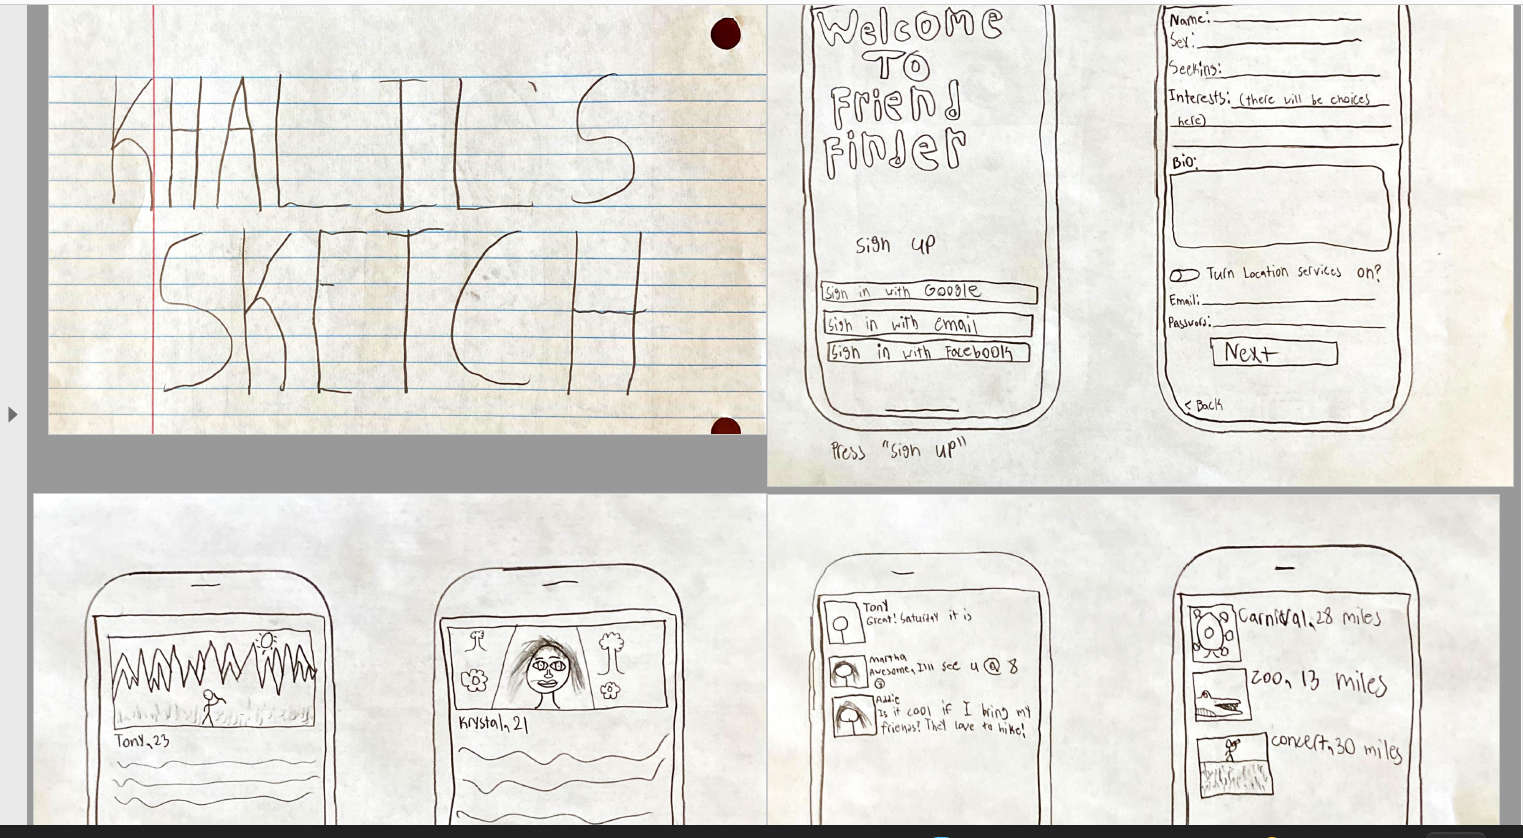 KHALIL'S
SKETCH
Welcome
To
Friend
Finder
Sign up
Sign in with Google
Sign in with email
Sign in with Facebook
Press "Sign up"
Name:
Sex:
Seeking:
Interests: (there will be choices
here)
Bio:
Turn Location services on?
Email:
Password:
Next
< Back
Tony, 23
Krystal, 21
Tony
Great! Saturday it is
martha
Awesome, I'll see u @ 8
Addie
Is it cool if I bring my
friends? They love to hike!
Carnival, 28 miles
Zoo, 13 miles
concert, 30 miles